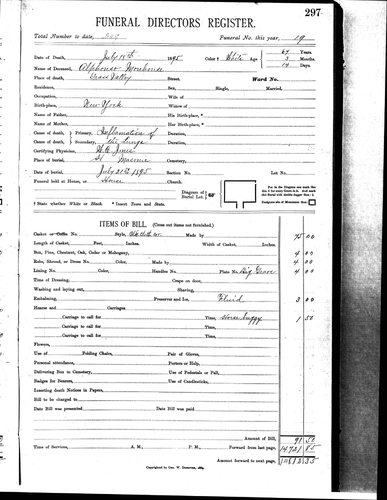 297
FUNERAL DIRECTORS REGISTER.
Total Number to date, Funeral No. this year, 19
Date of Death, July 18th 1895 Color † White Age 64 Years
3 Months
14 Days
Name of Deceased, Alphonso Morehouse
Place of death, Grass Valley Street, Ward No.
Residence, Sex, Single, Married,
Occupation, Wife of
Birth-place, New York Widow of
Name of Father, His Birth-place *
Name of Mother, Her Birth-place *
Cause of death { Primary, Inflamation of Duration,
Cause of death { Secondary, the Lungs Duration,
Certifying Physician, W.C. Jones Residence,
Place of burial, Cemetery,
Date of burial, July 21st 1895 Section No. Lot No.
Funeral held at Home or House Church,
Diagram of Lot or Vault
† State whether White or Black. * Insert Town and State.
ITEMS OF BILL. (Cross out items not furnished.)
Casket or Coffin No. Style Cloth cov. Made by 75 00
Length of Casket, Feet, Inches. Width of Casket, Inches.
Box, Pine, Chestnut, Oak, Cedar or Mahogany, 4 00
Robe, Shroud, or Dress No. Color, Made by 4 00
Lining No. Color, Handles No. Plate No. 4 00
Time of Dressing, Crape on door,
Washing and laying out, Shaving,
Embalming, Preserver and Ice, Fluid 3 00
Hearse and Carriages
Carriage to call for Time, Horse buggy 1 50
Carriage to call for Time,
Carriage to call for Time,
Flowers,
Use of Folding Chairs, Pair of Gloves,
Personal attendance, Porters or Help,
Delivering Box to Cemetery, Use of Pedestals or Pall,
Badges for Bearers, Use of Candlesticks,
Inserting death Notices in Papers,
Bill to be charged to
Date Bill was presented, Date Bill was paid,
Amount of Bill, 91 50
Time of Services, A. M., P. M., Forward from last page,
Amount forward to next page,